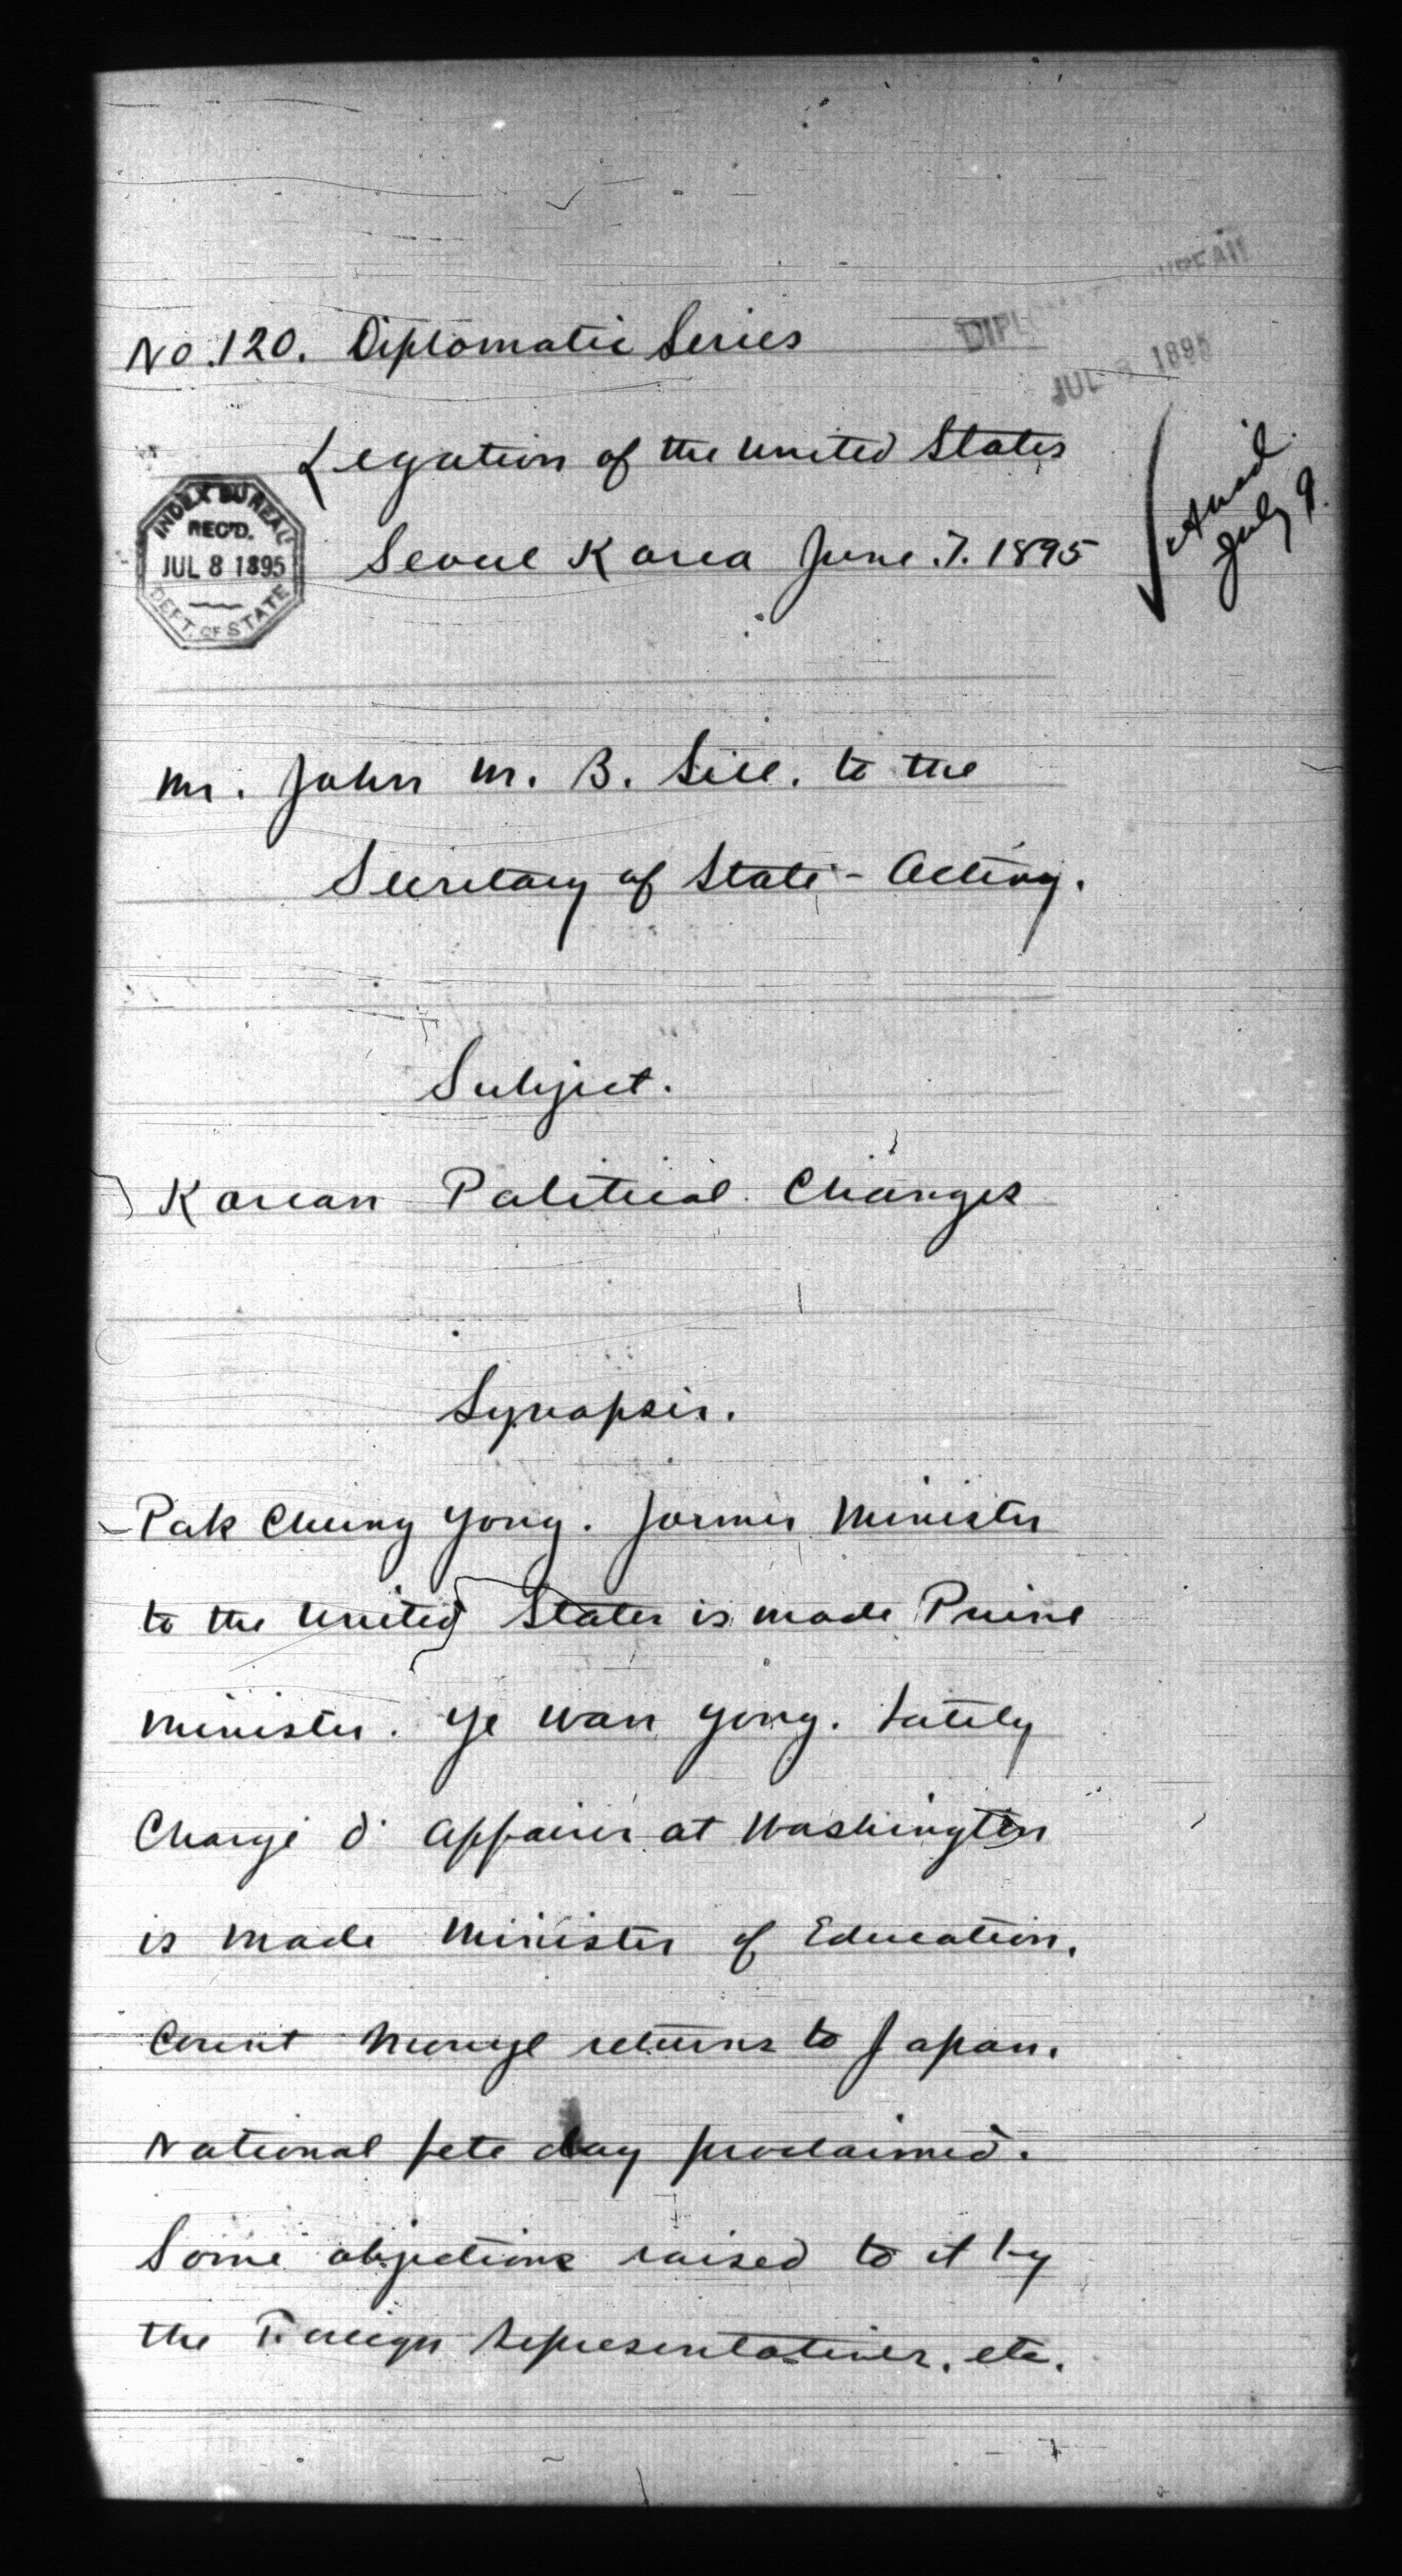 No. 120. Diplomatic Series
DIPLO
JUL 1895
Legation of the United States
Seoul Korea June. 7. 1895
July 9.
INDEX BUREAU
REC'D.
JUL 8 1895
DEPT. OF STATE
Mr. John M. B. Sill. to the
Secretary of State - Acting.
Subject.
Korean Political Changes
Synopsis.
Pak Chung Yong. former Minister
to the United States is made Prime
Minister. Ye Wan Yong. lately
Chargé d' Affaires at Washington
is made Minister of Education.
Count returns to Japan.
National fete day proclaimed.
Some objections raised to it by
the Foreign Representatives. etc.